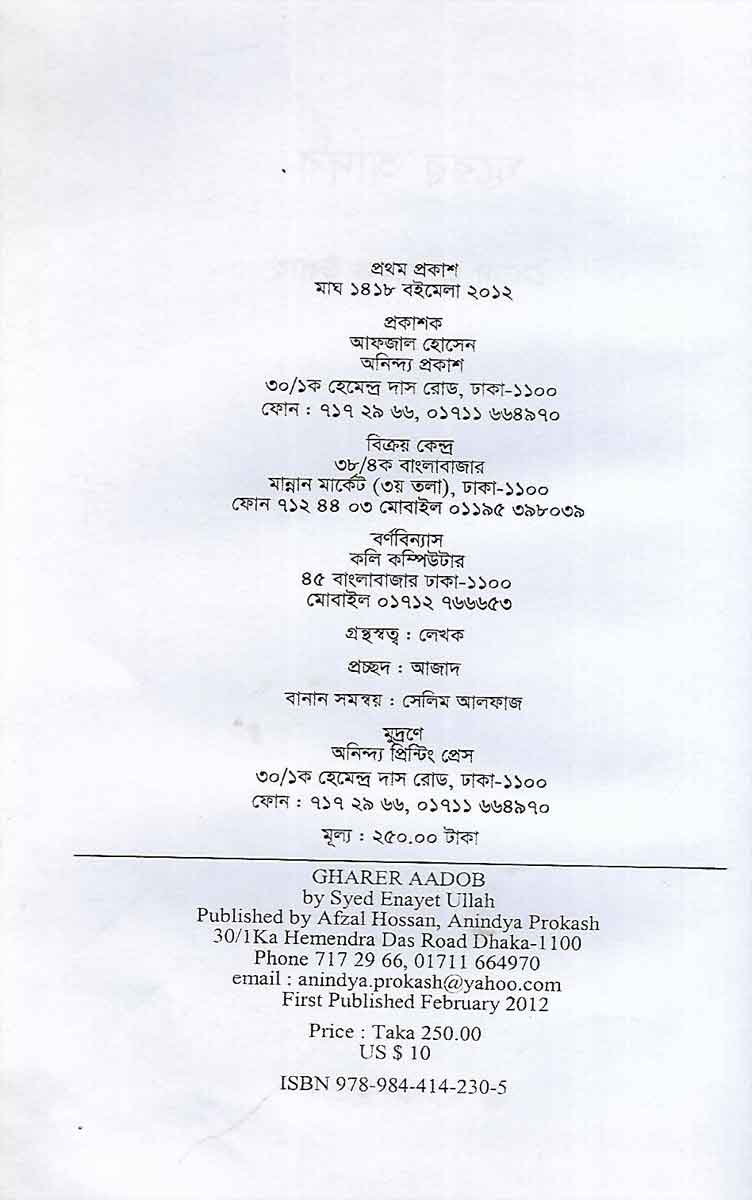 প্রথম প্রকাশ
মাঘ ১৪১৮ বইমেলা ২০১২
প্রকাশক
আফজাল হোসেন
অনিন্দ্য প্রকাশ
৩০/১ক হেমেন্দ্র দাস রোড, ঢাকা-১১০০
ফোন : ৭১৭ ২৯ ৬৬, ০১৭১১ ৬৬৪৯৭০
বিক্রয় কেন্দ্র
৩৮/৪ক বাংলাবাজার
মান্নান মার্কেট (৩য় তলা), ঢাকা-১১০০
ফোন ৭১২ ৪৪ ০৩ মোবাইল ০১১৯৫ ৩৯৮০৩৯
বর্ণবিন্যাস
কলি কম্পিউটার
৪৫ বাংলাবাজার ঢাকা-১১০০
মোবাইল ০১৭১২ ৭৬৬৬৫৩
গ্রন্থস্বত্ব : লেখক
প্রচ্ছদ : আজাদ
বানান সমন্বয় : সেলিম আলফাজ
মুদ্রণে
অনিন্দ্য প্রিন্টিং প্রেস
৩০/১ক হেমেন্দ্র দাস রোড, ঢাকা-১১০০
ফোন : ৭১৭ ২৯ ৬৬, ০১৭১১ ৬৬৪৯৭০
মূল্য : ২৫০.০০ টাকা
GHARER AADOB
by Syed Enayet Ullah
Published by Afzal Hossan, Anindya Prokash
30/1Ka Hemendra Das Road Dhaka-1100
Phone 717 29 66, 01711 664970
email : anindya.prokash@yahoo.com
First Published February 2012
Price : Taka 250.00
US $ 10
ISBN 978-984-414-230-5